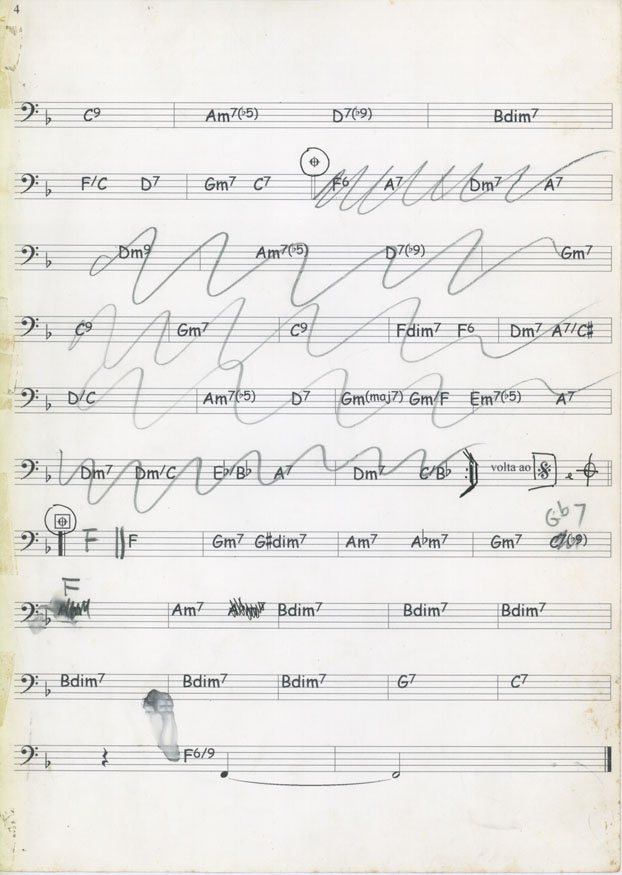 4
C9 Am7(♭5) D7(♭9) Bdim7
F/C D7 Gm7 C7 F6 A7 Dm7 A7
Dm9 Am7(♭5) D7(♭9) Gm7
C9 Gm7 C9 Fdim7 F6 Dm7 A7/C#
D/C Am7(♭5) D7 Gm(maj7) Gm/F Em7(♭5) A7
Dm7 Dm/C E♭/B♭ A7 Dm7 C/B♭ volta ao e
G♭7
F F Gm7 G#dim7 Am7 A♭m7 Gm7 (♭9)
F
Am7 Bdim7 Bdim7 Bdim7
Bdim7 Bdim7 Bdim7 G7 C7
F6/9